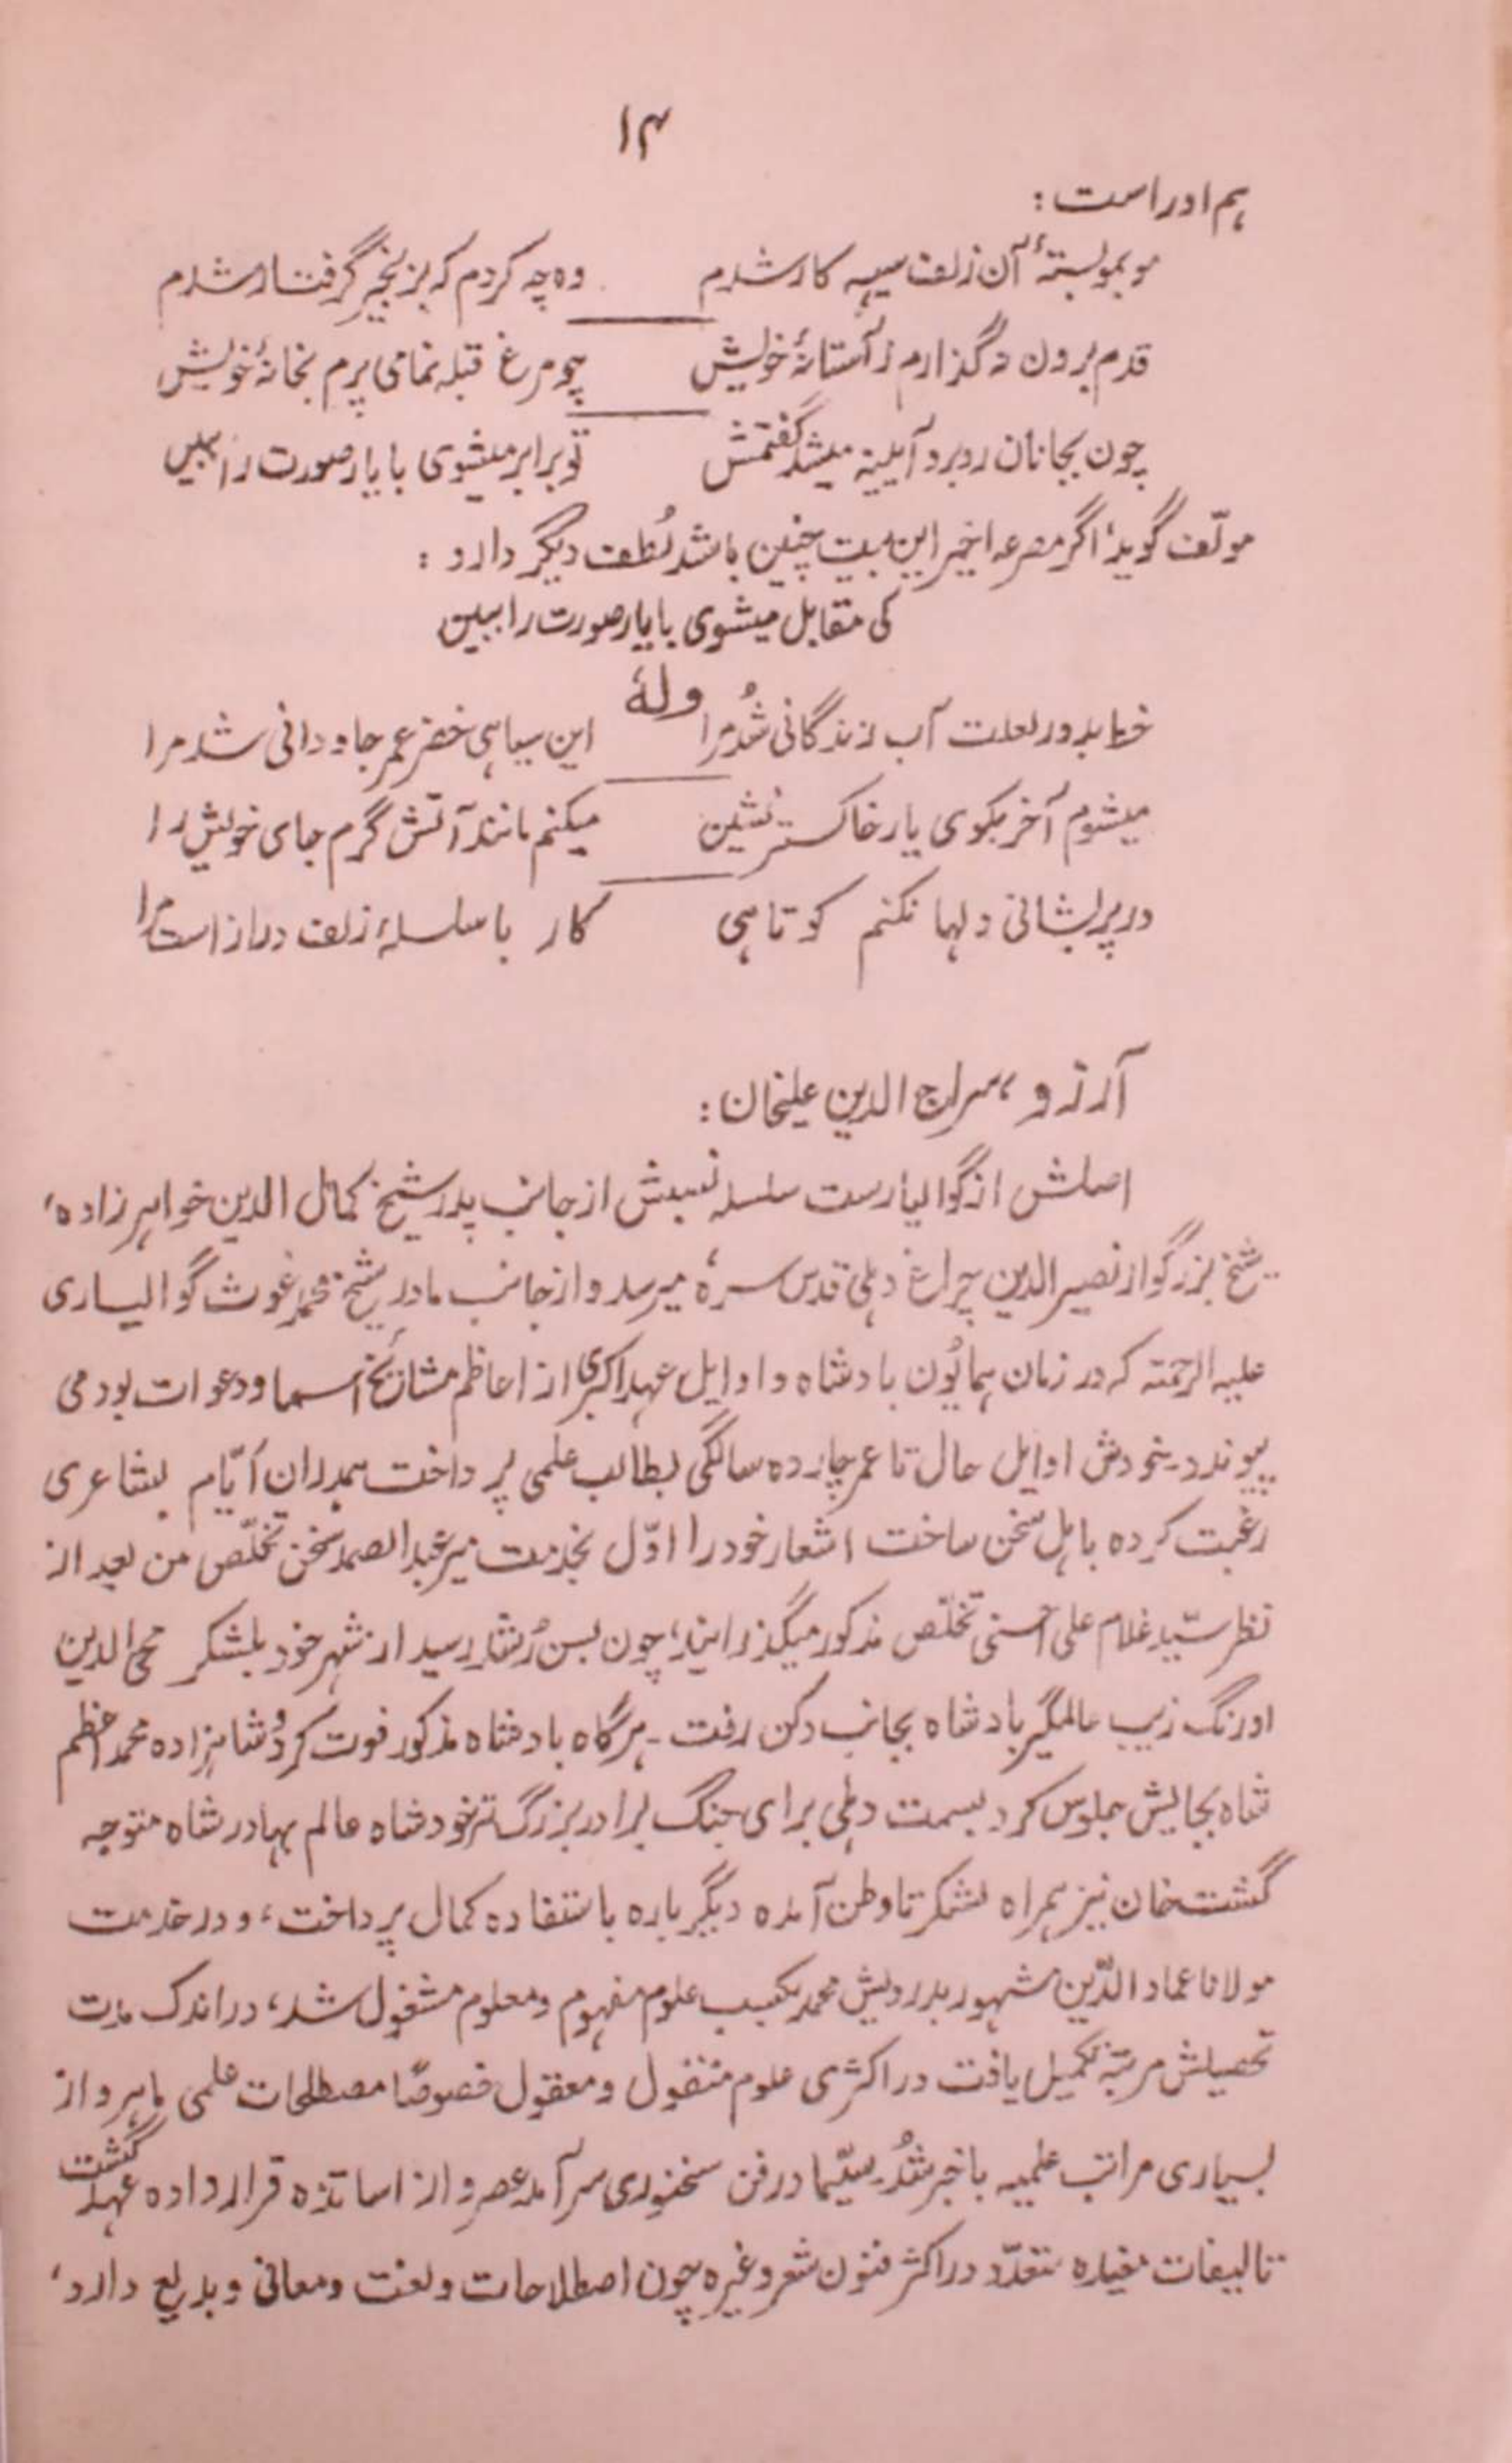 ۱۴
ہم اوراست :
مو بموبستهٔ آن زلف سیہ کار شدم وه چہ کردم کہ بزنجیر گرفتار شدم
قدم برون نہ گذارم ز آستانهٔ خویش چو مرغ قبلہ نما می پرم بخانهٔ خویش
چون بجانان روبرو آیینہ میشد گفتمش تو برابر میشوی با یار صورت را ببین
مولّف گوید، اگر مصرعہ اخیر این بیت چنین باشد لُطف دیگر دارد :
کی مقابل میشوی با یار صورت را ببین
ولهٔ
خط بدور لعلت آب زندگانی شُد مرا این سیاہی خضر عمر جاودانی شد مرا
میشوم آخر بکوی یار خاکستر نشین میکنم مانند آتش گرم جای خویش را
در پریشانی دلہا نکنم کوتاہی کار با سلسلهٔ زلف دراز است مرا
آرزو، سراج الدین علیخان :
اصلش از گوالیارست سلسلہ نسبش از جانب پدر شیخ کمال الدین خواہر زاده،
شیخ بزرگوار نصیر الدین چراغ دہلی قدس سرهٗ میرسد و از جانب مادر شیخ محمد غوث گوالیاری
علیہ الرحمتہ کہ در زمان ہمائون بادشاه و اوایل عہد اکبری از اعاظم مشائخ اسما و دعوات بود می
پیوندد۔ بخودش اوایل حال تا عمر چارده سالگی بطالب علمی پرداخت ہمدران ایّام بشاعری
رغبت کرده باہل سخن ساخت اشعار خود را اوّل بخدمت میر عبد الصمد سخن تخلّص من بعد از
نظر سیّد غلام علی احسنی تخلّص مذکور میگذرانید، چون بسن رُشد رسید از شہر خود بلشکر محی الدین
اورنگ زیب عالمگیر بادشاه بجانب دکن رفت ۔ ہرگاه بادشاه مذکور فوت کرد و شاہزاده محمد اعظم
شاه بجایش جلوس کرد بسمت دہلی برای جنگ برادر بزرگ تر خود شاه عالم بہادر شاه متوجہ
گشت خان نیز ہمراه لشکر تا وطن آمده دیگر باره باستفاده کمال پرداخت، و در خدمت
مولانا عماد الدّین مشہور بدرویش محمد بکسب علوم مفہوم و معلوم مشغول شد، در اندک مدت
تحصیلش مرتبہ تکمیل یافت در اکثری علوم منقول و معقول خصوصًا مصطلحات علمی ماہر و از
بسیاری مراتب علمیہ باخبر شُد۔ سیّما در فن سخنوری سرآمد عصر و از اساتذه قرار داده عہد گشت
تالیفات متعدّد در اکثر فنون شعر و غیره چون اصطلاحات و لغت و معانی و بدیع دارد،